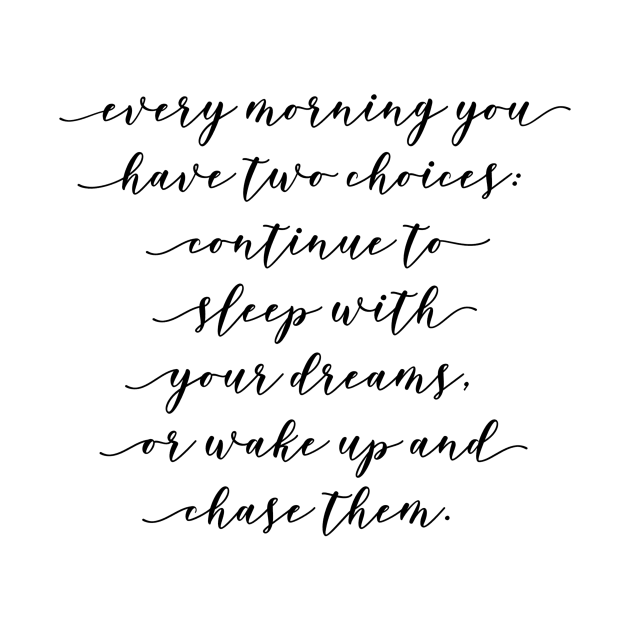 every morning you
have two choices:
continue to
sleep with
your dreams,
or wake up and
chase them.